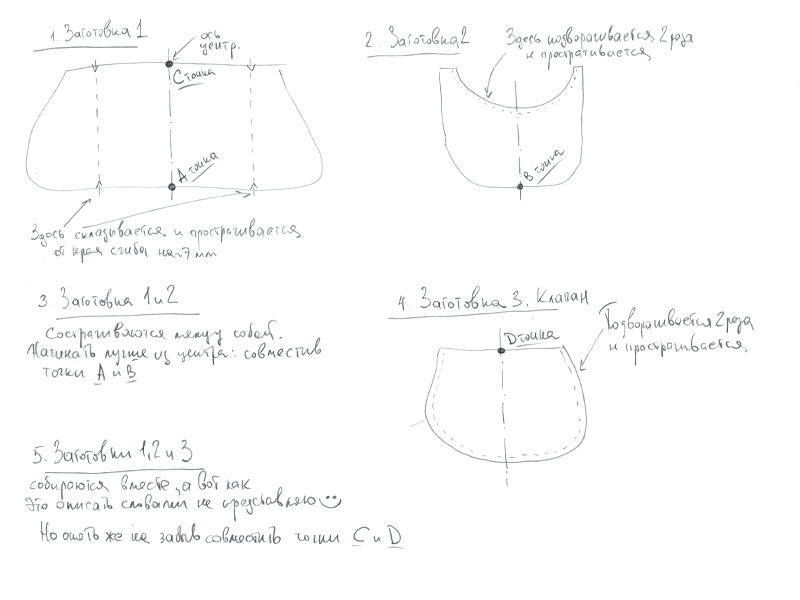 1. Заготовка 1
ось
центр.
C точка
A точка
Здесь складывается и прострачивается
от края сгиба на ~7 мм
2. Заготовка 2
Здесь подворачивается 2 раза
и прострачивается
B точка
3. Заготовка 1 и 2
Сострачиваются между собой.
Начинать лучше из центра: совместив
точки A и B
4. Заготовка 3. Клапан
Подворачивается 2 раза
и прострачивается
D точка
5. Заготовки 1, 2 и 3
собираются вместе, а вот как
это описать словами не представляю
Но опять же не забыв совместить точки C и D